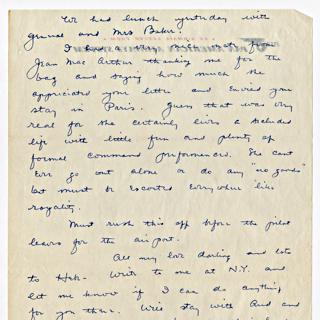 We had lunch yesterday with
General and Mrs Baker.
I had a very nice note from
Jean Mac Arthur thanking me for the
bag and saying how much she
appreciated your letter and envied your
stay in Paris. Guess that was very
real for she certainly lives a secluded
life with little fun and plenty of
formal command performances. She can't
ever go out alone or do any "no goods"
but must be escorted everywhere like
royality.
Must rush this off before the pilot
leaves for the airport.
All my love darling and lots
to Hak- Write to me at N.Y. and
let me know if I can do anything
for you there. Will stay with and